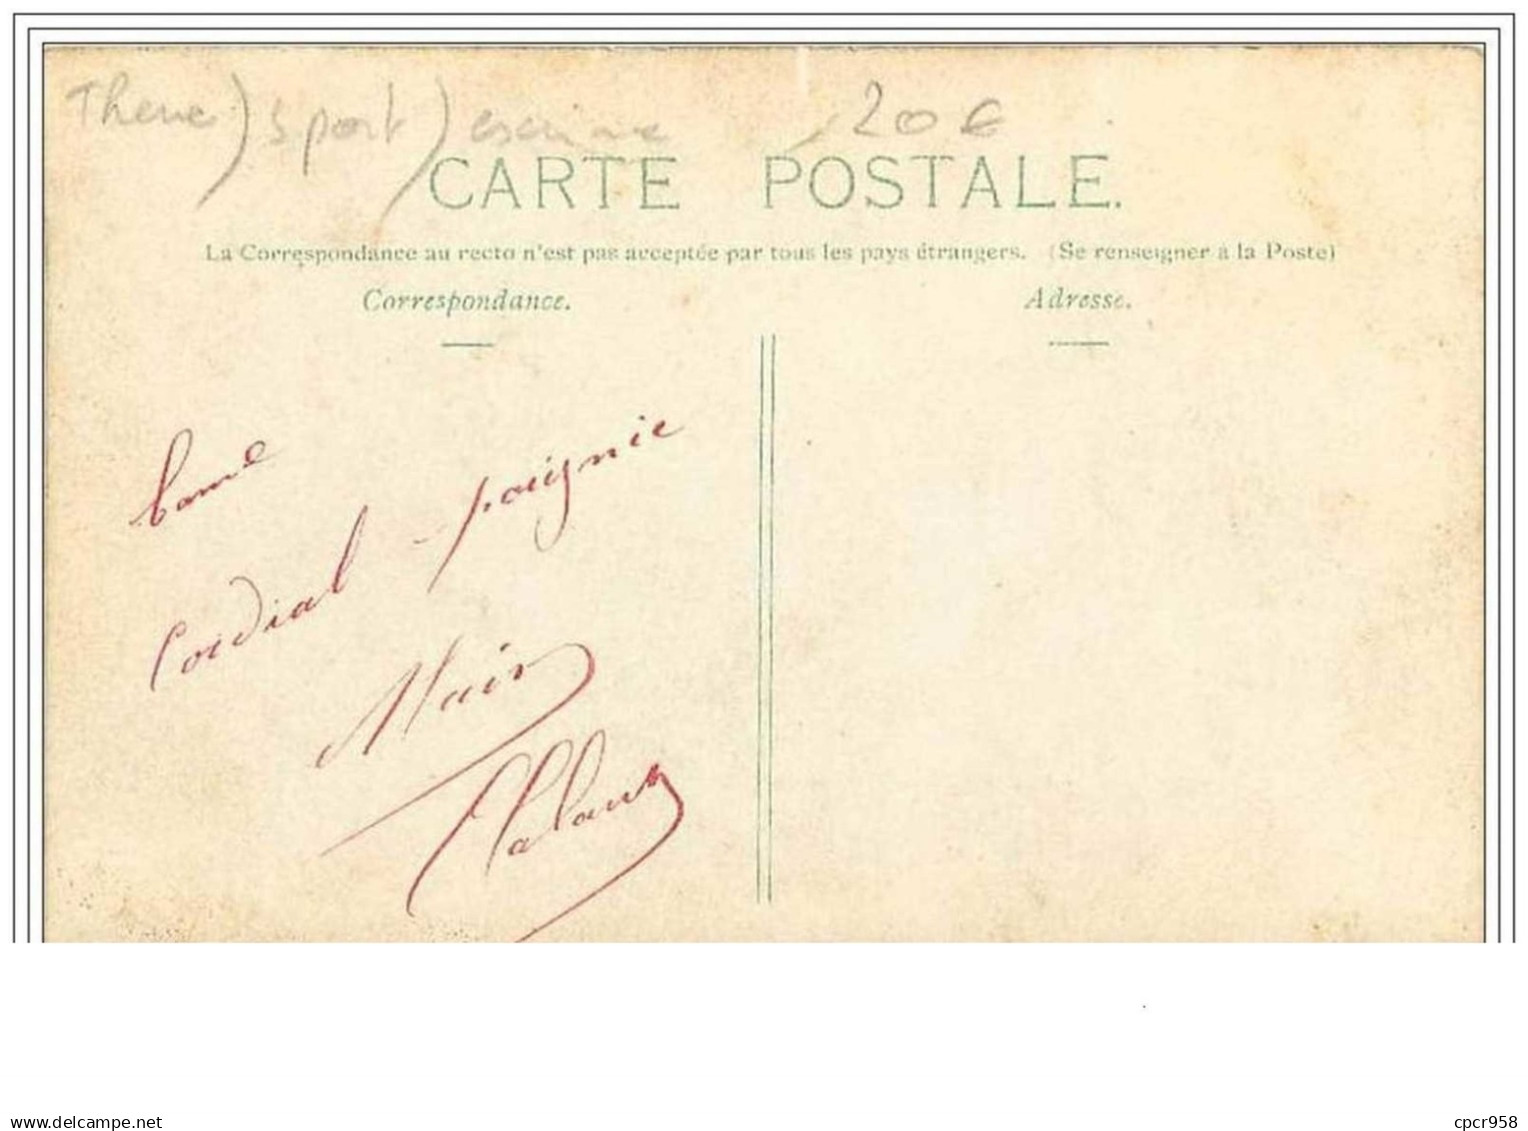 Theme) sport) escrime 20€
CARTE POSTALE.
La Correspondance au recto n'est pas acceptée par tous les pays étrangers. (Se renseigner à la Poste)
Correspondance. Adresse.
bonne
cordial poignie
delcampe.net
cpcr958